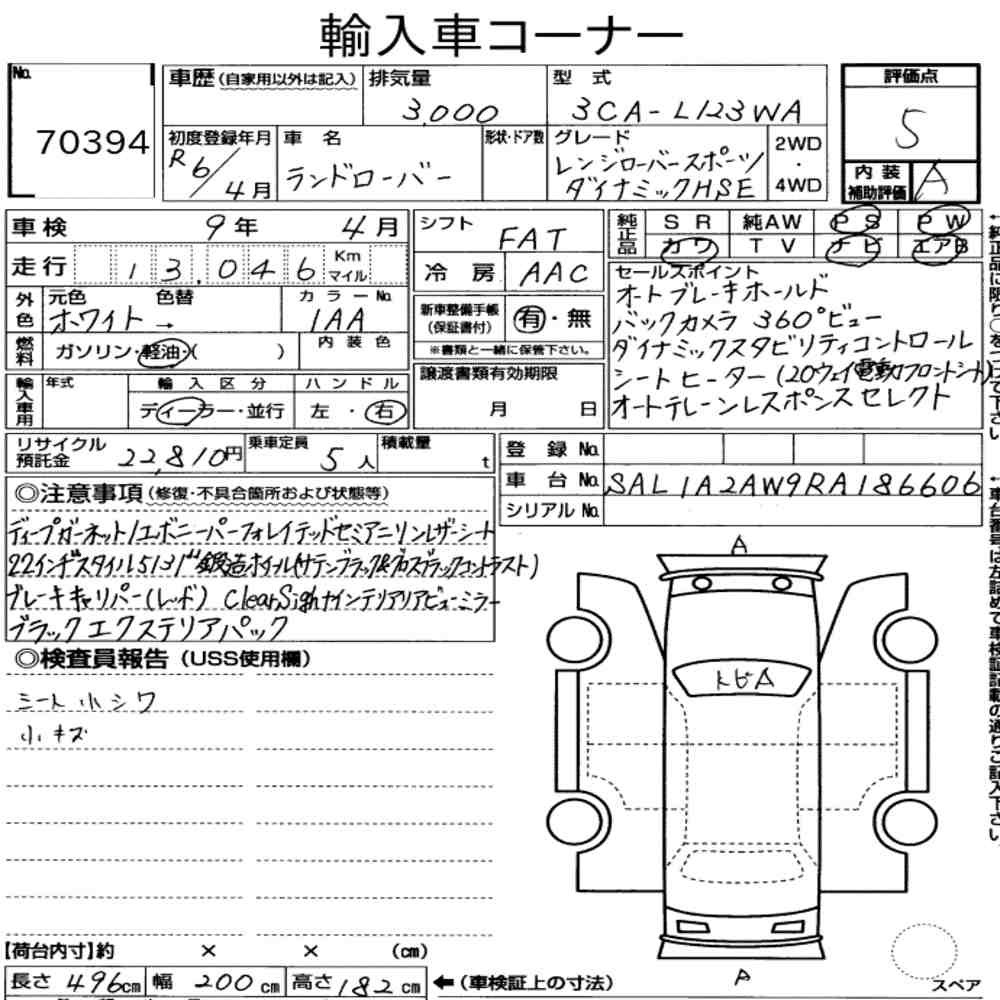 輸入車コーナー
No. 70394
車歴(自家用以外は記入) 排気量 3,000 型式 3CA-L123WA 評価点 5
初度登録年月 R6/4月 車名 ランドローバー 形状・ドア数 グレード レンジローバースポーツ/ダイナミックHSE 2WD・4WD 内装補助評価 A
車検 9年 4月 シフト FAT 純正品 SR 純AW PS PW
走行 13,046 Km マイル 冷房 AAC カワ TV ナビ エアB
外色 元色 ホワイト → 色替 カラーNo. 1AA 新車整備手帳(保証書付) 有・無
※書類と一緒に保管下さい。
燃料 ガソリン・軽油・( ) 内装色
輸入車用 年式 輸入区分 ディーラー・並行 ハンドル 左・右 譲渡書類有効期限 月 日
セールスポイント
オートブレーキホールド
バックカメラ 360°ビュー
ダイナミックスタビリティコントロール
シートヒーター(20ウェイ電動フロントシート)
オートテレーンレスポンスセレクト
←純正品に限り○をつけて下さい。
リサイクル預託金 22,810円 乗車定員 5人 積載量 t
登録No.
車台No. SAL1A2AW9RA186606
シリアルNo.
←車台番号は左詰めで車検証記載の通りご記入下さい。
◎注意事項(修復・不具合箇所および状態等)
ディープガーネット/エボニーパーフォレイテッドセミアニリンレザーシート
22インチ"スタイル5131"鍛造ホイール(サテンブラック&グロスブラックコントラスト)
ブレーキキャリパー(レッド) ClearSightインテリアリアビューミラー
ブラックエクステリアパック
◎検査員報告(USS使用欄)
シート小シワ
小キズ
A
トビA
A
スペア
【荷台内寸】約 × × (cm)
長さ 496cm 幅 200cm 高さ 182cm ←(車検証上の寸法)